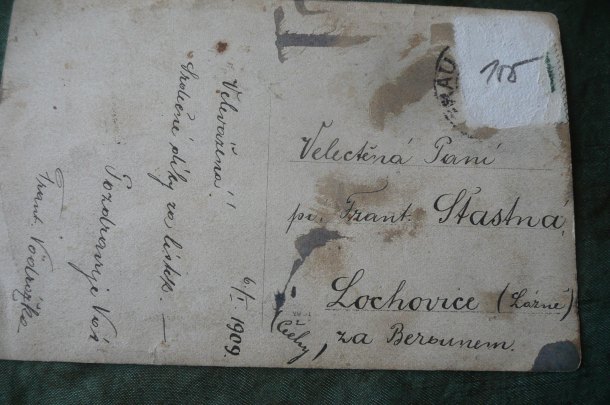 Velevážená!
Srdečné díky za lístek. —
Pozdravuje Vás
Frant. Vodrážka
6/I 1909.
105
Velectěná Paní
pí. Frant. Šťastná,
Lochovice (Lázně)
za Berounem.
(Čechy)